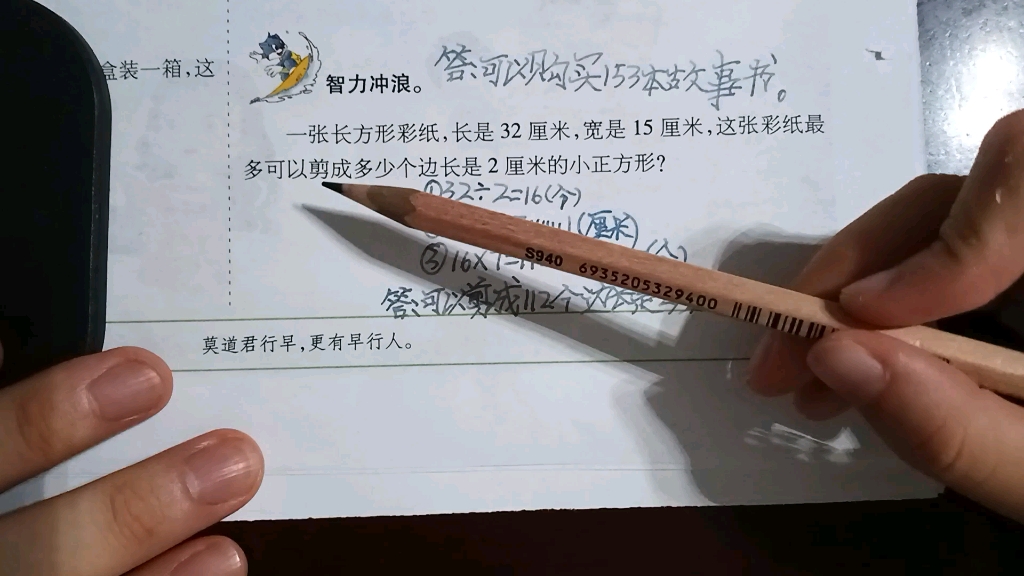 盒装一箱，这
答：可以购买153本故事书。
智力冲浪。
一张长方形彩纸，长是 32 厘米，宽是 15 厘米，这张彩纸最
多可以剪成多少个边长是 2 厘米的小正方形？
①32÷2=16(个)
1(厘米)
③16×7=
答：可以剪成112个边长是
S940 6935205329400
莫道君行早，更有早行人。